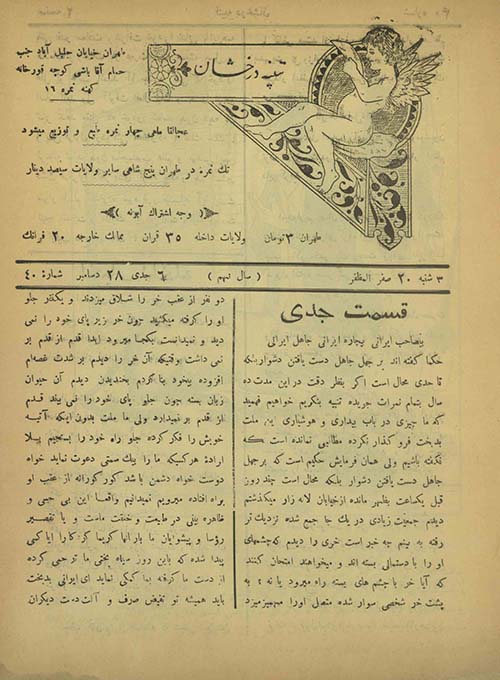 طهران خیابان جلیل آباد جنب
حمام آقا باشی کوچه قورخانه
کهنه نمره ۱۶
عجالتاً ماهی چهار نمره طبع و توزیع میشود
تك نمره در طهران پنج شاهی سایر ولایات سیصد دینار
وجه اشتراك آبونه
طهران ۳ تومان ولایات داخله ۳۵ قران ممالك خارجه ۲۰ فرانك
۳ شنبه ۲۰ صفر المظفر
( سال نهم )
۶ جدی ۲۸ دسامبر
شماره ۴۰
قسمت جدی
بیصاحب ایرانی بیچاره ایرانی جاهل ایرانی
حکما گفته اند بر جهل جاهل دست یافتن دشوار بلکه
تا حدی محال است اکر بنظر دقت در این مدت ده
سال بتمام نمرات جریده تنبیه بنکریم خواهیم فهمید
که ما چیزی در باب بیداری و هوشیاری این ملت
بدبخت فرو گذار نکرده مطالبی نمانده است که
نگفته باشیم ولی همان فرمایش حکیم است که بر جهل
جاهل دست یافتن دشوار بلکه محال است چند روز
قبل یکساعت بظهر مانده از خیابان لاله زار میکذشتم
دیدم جمعیت زیادی در یك جا جمع شده نزدیك تر
رفته به بینم چه خبر است خری را دیدم که چشمهای
او را با دستمالی بسته اند و میخواهند امتحان کنند
که آیا خر با چشم های بسته راه میرود یا نه ؟ به
پشت خر شخصی سوار شده متصل اورا مهمیز میزد
دو نفر از عقب خر را شلاق میزدند و یکنفر جلو
او را گرفته میکشید چون خر زیر پای خود را نمی
دید و نمیدانست بکجا میرود ابدا قدم از قدم بر
نمی داشت وقتیکه آن خر را دیدم بر شدت غصه‌ام
افزوده بیخود بنا کردم بخندیدن دیدم آن حیوان
زبان بسته چون جلو پای خود را نمی بیند قدم
از قدم بر نمیدارد ولی ما ملت بدون اینکه آتیه
خویش را فکر کرده جلو راه خود را بسنجیم بیلا
ارادهٔ هر کسیکه ما را بیك سمتی دعوت نماید خواه
دوست خواه دشمن باشد کور کورانه از عقب او
براه افتاده میرویم نمیدانیم واقعا این بی حسی و
ظاهره بینی در طبیعت و خلقت ماست و یا تقصیر
رؤسا و پیشوایان ما
پیدا شده که باین روز سیاه بختی ما ترحمی کرده
از دست ما گرفته بما کمکی نماید ای ایرانی بدبخت
باید همیشه تو تفیض صرف و آلت دست دیگران